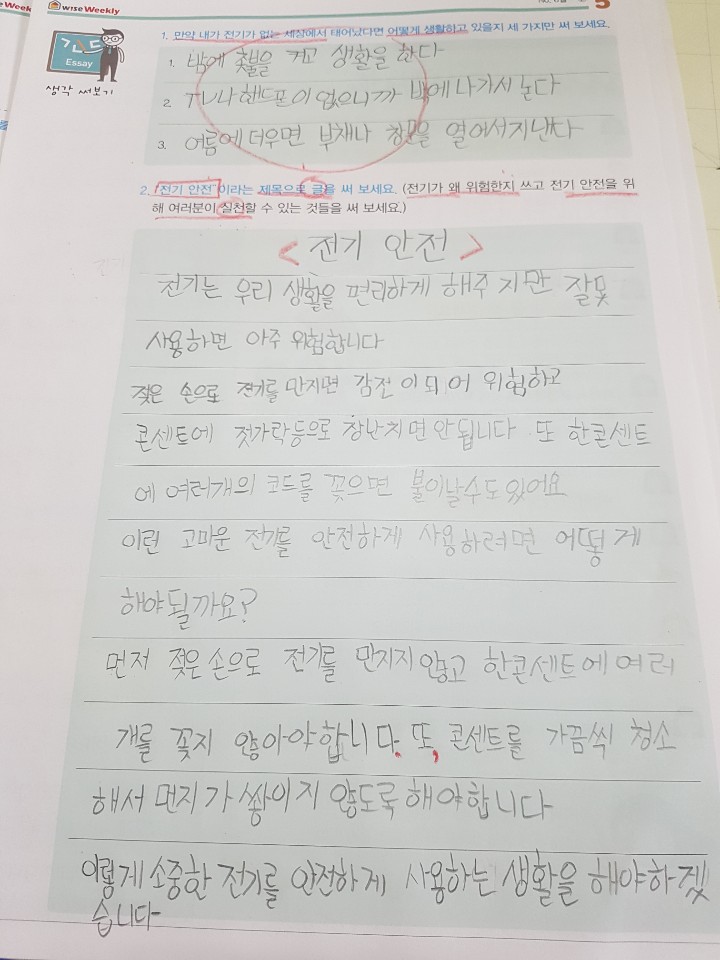 wise Weekly
5
간드
Essay
생각 써보기
1. 만약 내가 전기가 없는 세상에서 태어났다면 어떻게 생활하고 있을지 세 가지만 써 보세요.
1. 밖에 촞불을 켜고 생활을 한다
2. TV나 핸드폰이 없으니까 밖에 나가서 논다
3. 여름에 더우면 부채나 창문을 열어서 지낸다
2. "전기 안전"이라는 제목으로 글을 써 보세요. (전기가 왜 위험한지 쓰고 전기 안전을 위
해 여러분이 실천할 수 있는 것들을 써 보세요.)
< 전기 안전 >
전기는 우리 생활을 편리하게 해주지만 잘못
사용하면 아주 위험합니다
젖은 손으로 전기를 만지면 감전이 되어 위험하고
콘센트에 젓가락등으로 장난치면 안됩니다 또 한콘센트
에 여러개의 코드를 꽂으면 불이날수도있어요
이런 고마운 전기를 안전하게 사용하려면 어떻게
해야될까요?
먼저 젖은손으로 전기를 만지지 않고 한콘센트에여러
개를 꽂지 않아야합니다. 또, 콘센트를 가끔씩 청소
해서 먼지가 쌓이지 않도록해야합니다
이렇게 소중한 전기를 안전하게 사용하는 생활을 해야하겠
습니다